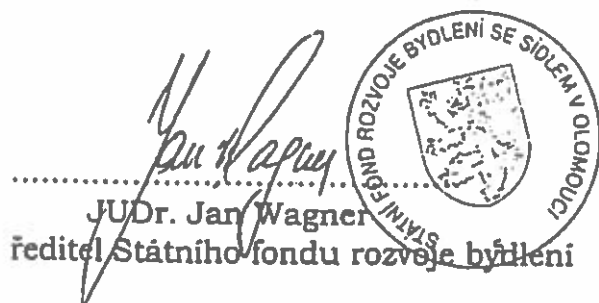 STÁTNÍ FOND ROZVOJE BYDLENÍ SE SÍDLEM V OLOMOUCI
Jan Wagner
JUDr. Jan Wagner
ředitel Státního fondu rozvoje bydlení